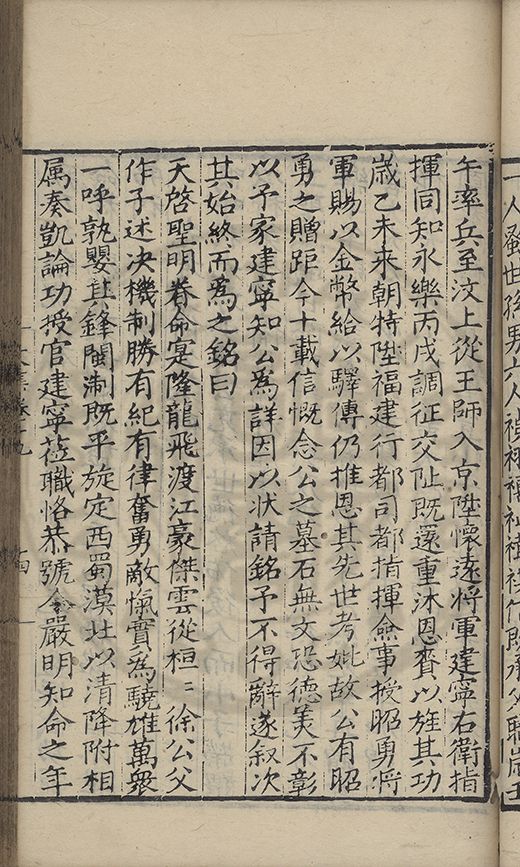 午率兵至汶上從王師入京陞懷遠將軍建寧右衛指
揮同知永樂丙戌調征交阯既還重沐恩賚以旌其功
歲乙未來朝特陞福建行都司都指揮僉事授昭勇將
軍賜以金幣給以驛傳仍推恩其先世考妣故公有昭
勇之贈距今十載信慨念公之墓石無文恐德美不彰
以予家建寧知公為詳因以狀請銘予不得辭遂叙次
其始終而為之銘曰
天啓聖明眷命寔隆龍飛渡江豪傑雲從桓〻徐公父
作子述决機制勝有紀有律奮勇敵愾實為驍雄萬衆
一呼孰嬰其鋒閩淛既平旋定西蜀漠北以清降附相
属奏凱論功授官建寧蒞職恪恭號令嚴明知命之年